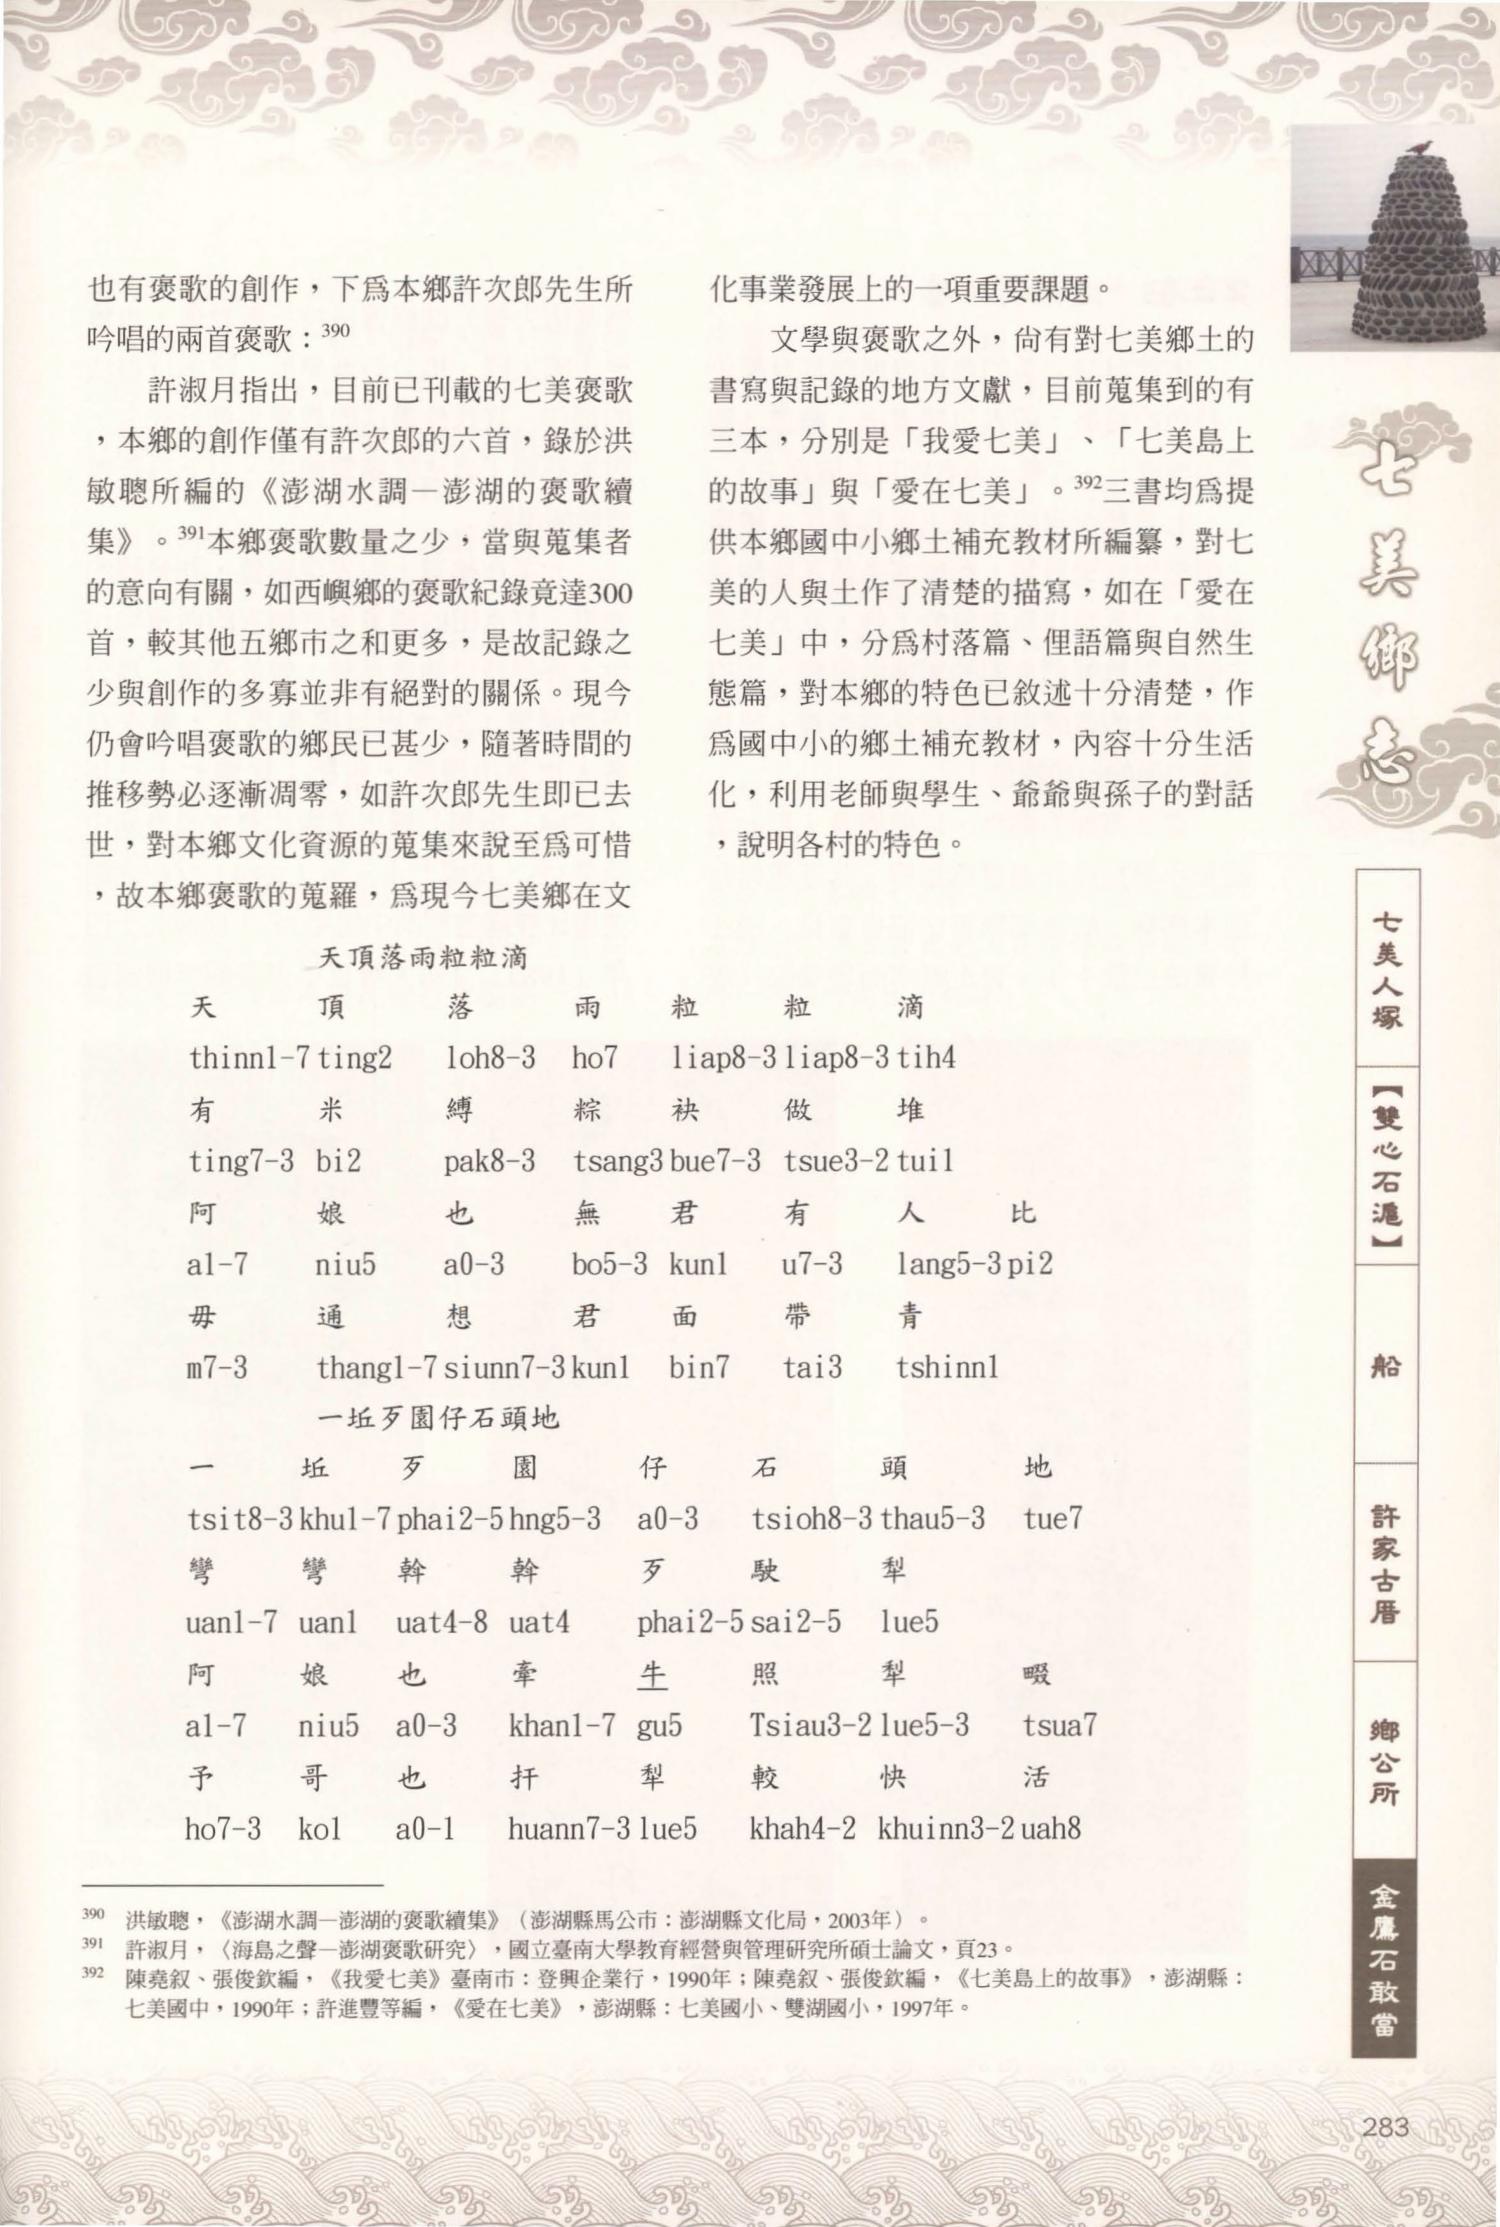 也有褒歌的創作，下爲本鄉許次郎先生所
吟唱的兩首褒歌：390
許淑月指出，目前已刊載的七美褒歌
，本鄉的創作僅有許次郎的六首，錄於洪
敏聰所編的《澎湖水調—澎湖的褒歌續
集》。391本鄉褒歌數量之少，當與蒐集者
的意向有關，如西嶼鄉的褒歌紀錄竟達300
首，較其他五鄉市之和更多，是故記錄之
少與創作的多寡並非有絕對的關係。現今
仍會吟唱褒歌的鄉民已甚少，隨著時間的
推移勢必逐漸凋零，如許次郎先生即已去
世，對本鄉文化資源的蒐集來說至爲可惜
，故本鄉褒歌的蒐羅，爲現今七美鄉在文
化事業發展上的一項重要課題。
文學與褒歌之外，尙有對七美鄉土的
書寫與記錄的地方文獻，目前蒐集到的有
三本，分別是「我愛七美」、「七美島上
的故事」與「愛在七美」。392三書均爲提
供本鄉國中小鄉土補充教材所編纂，對七
美的人與土作了清楚的描寫，如在「愛在
七美」中，分爲村落篇、俚語篇與自然生
態篇，對本鄉的特色已敘述十分清楚，作
爲國中小的鄉土補充教材，內容十分生活
化，利用老師與學生、爺爺與孫子的對話
，說明各村的特色。
天頂落雨粒粒滴
天 頂 落 雨 粒 粒 滴
thinn1-7 ting2 loh8-3 ho7 liap8-3 liap8-3 tih4
有 米 縛 粽 袂 做 堆
ting7-3 bi2 pak8-3 tsang3 bue7-3 tsue3-2 tui1
阿 娘 也 無 君 有 人 比
a1-7 niu5 a0-3 bo5-3 kun1 u7-3 lang5-3 pi2
毋 通 想 君 面 帶 青
m7-3 thang1-7 siunn7-3 kun1 bin7 tai3 tshinn1
一坵歹園仔石頭地
一 坵 歹 園 仔 石 頭 地
tsit8-3 khu1-7 phai2-5 hng5-3 a0-3 tsioh8-3 thau5-3 tue7
彎 彎 斡 斡 歹 駛 犁
uan1-7 uan1 uat4-8 uat4 phai2-5 sai2-5 lue5
阿 娘 也 牽 牛 照 犁 畷
a1-7 niu5 a0-3 khan1-7 gu5 Tsiau3-2 lue5-3 tsua7
予 哥 也 扞 犁 較 快 活
ho7-3 ko1 a0-1 huann7-3 lue5 khah4-2 khuinn3-2 uah8
390 洪敏聰，《澎湖水調—澎湖的褒歌續集》（澎湖縣馬公市：澎湖縣文化局，2003年）。
391 許淑月，〈海島之聲—澎湖褒歌研究〉，國立臺南大學教育經營與管理研究所碩士論文，頁23。
392 陳堯叙、張俊欽編，《我愛七美》臺南市：登興企業行，1990年；陳堯叙、張俊欽編，《七美島上的故事》，澎湖縣：
七美國中，1990年；許進豐等編，《愛在七美》，澎湖縣：七美國小、雙湖國小，1997年。
七美鄉志
七美人塚
【雙心石滬】
船
許家古厝
鄉公所
金鷹石敢當
283